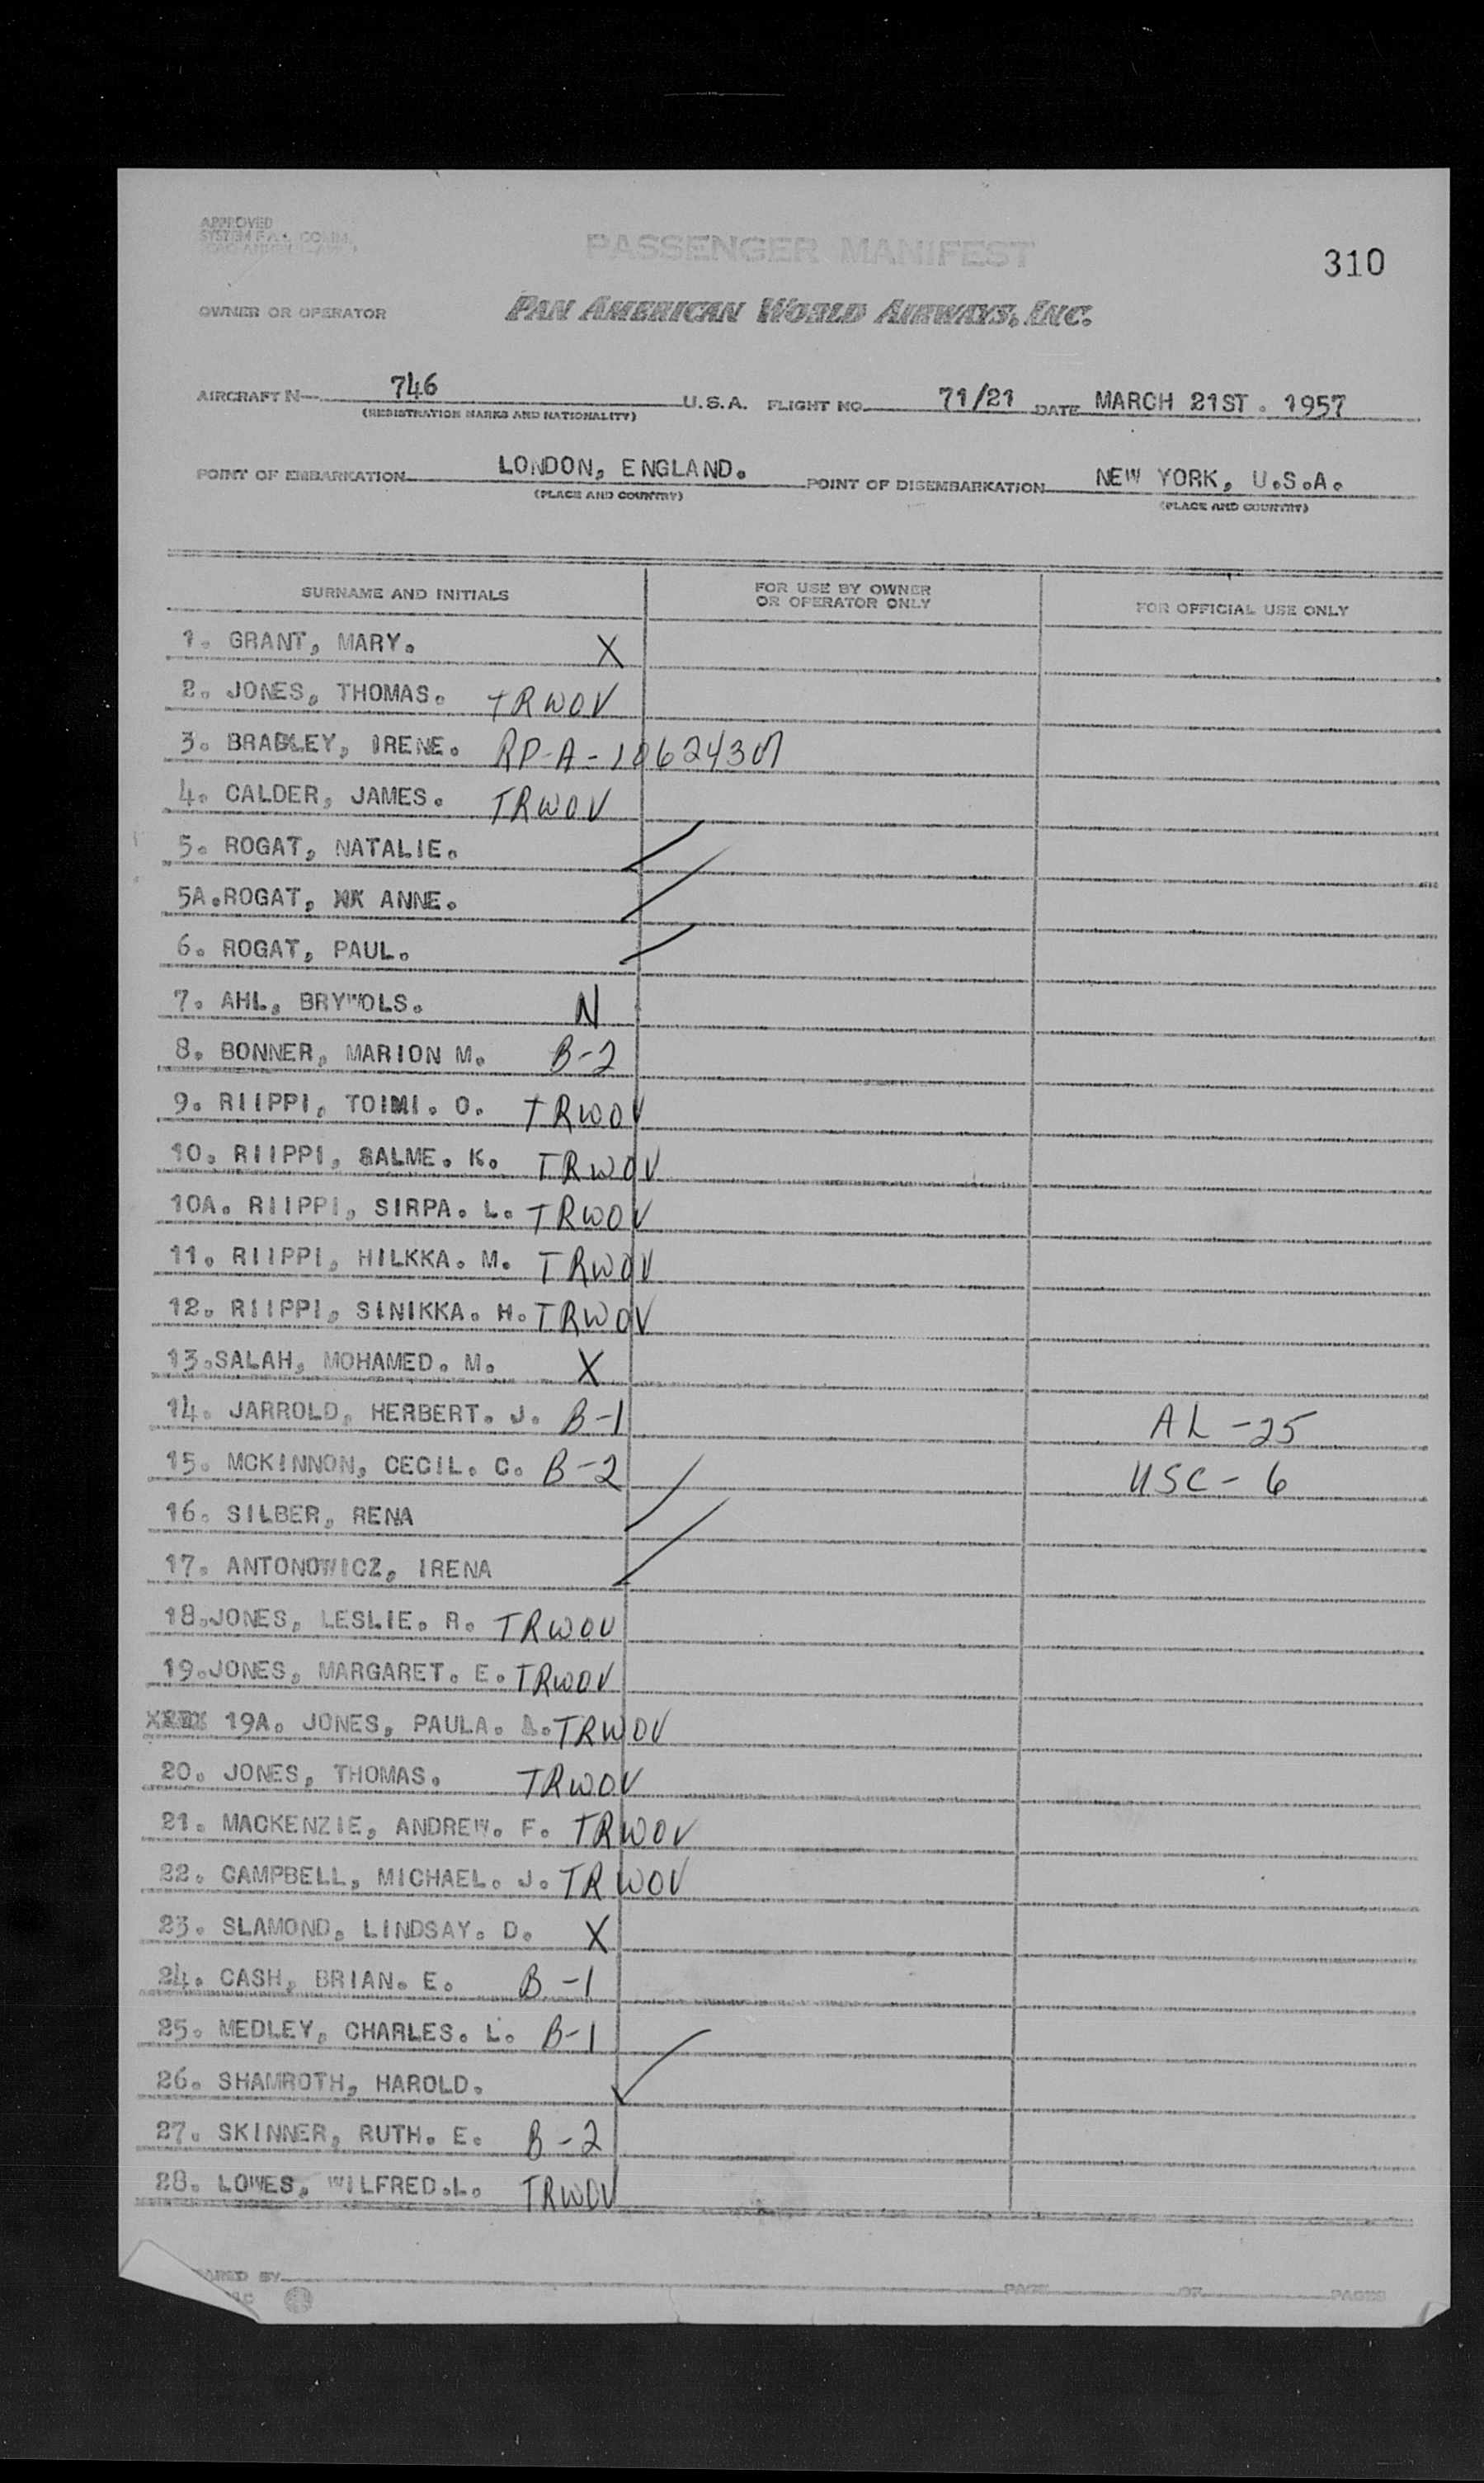 APPROVED
PASSENGER MANIFEST
310
OWNER OR OPERATOR PAN AMERICAN WORLD AIRWAYS, INC.
AIRCRAFT N 746 U.S.A. FLIGHT NO. 71/21 DATE MARCH 21ST. 1957
(REGISTRATION MARKS AND NATIONALITY)
POINT OF EMBARKATION LONDON, ENGLAND. POINT OF DISEMBARKATION NEW YORK, U.S.A.
(PLACE AND COUNTRY) (PLACE AND COUNTRY)
SURNAME AND INITIALS FOR USE BY OWNER OR OPERATOR ONLY FOR OFFICIAL USE ONLY
1. GRANT, MARY. X
2. JONES, THOMAS. TRWOV
3. BRADLEY, IRENE. RP-A-
4. CALDER, JAMES. TRWOV
5. ROGAT, NATALIE.
5A.ROGAT, ANNE.
6. ROGAT, PAUL.
7. AHL, BRYWOLS. N
8. BONNER, MARION M. B-2
9. RIIPPI, TOIMI. O. TRWOV
10. RIIPPI, SALME. K. TRWOV
10A. RIIPPI, SIRPA. L. TRWOV
11. RIIPPI, HILKKA. M. TRWOV
12. RIIPPI, SINIKKA. H. TRWOV
13.SALAH, MOHAMED. M. X
14. JARROLD, HERBERT. J. B-1 AL-25
15. MCKINNON, CECIL. C. B-2 USC-6
16. SILBER, RENA
17. ANTONOWICZ, IRENA
18.JONES, LESLIE. R. TRWOV
19.JONES, MARGARET. E. TRWOV
19A. JONES, PAULA. TRWOV
20. JONES, THOMAS. TRWOV
21. MACKENZIE, ANDREW. F. TRWOV
22. CAMPBELL, MICHAEL. J. TRWOV
23. SLAMOND, LINDSAY. D. X
24. CASH, BRIAN. E. B-1
25. MEDLEY, CHARLES. L. B-1
26. SHAMROTH, HAROLD.
27. SKINNER, RUTH. E. B-2
28. LOWES, WILFRED.L. TRWOV
BY PAGE OF PAGES